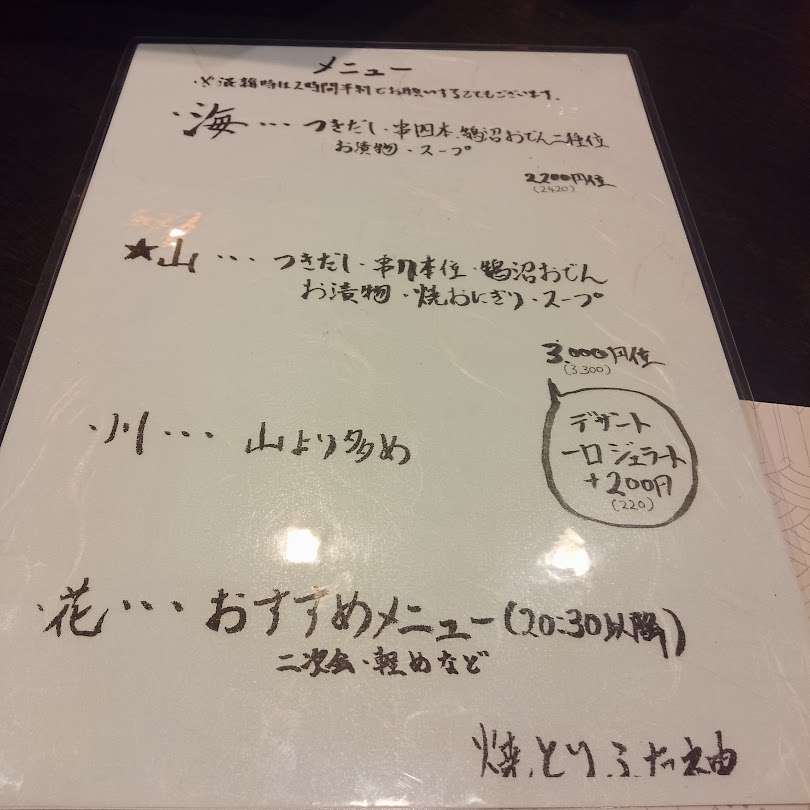 メニュー
※混雑時は2時間半制でお願いすることもございます。
・海・・・つきだし・串四本・鵠沼おでん二種位
お漬物・スープ
2,200円位
(2420)
★山・・・つきだし・串7本位・鵠沼おでん
お漬物・焼おにぎり・スープ
3,000円位
(3,300)
デザート
一口ジェラート
+200円
(220)
・川・・・山より多め
・花・・・おすすめメニュー(20:30以降)
二次会・軽めなど
焼とり